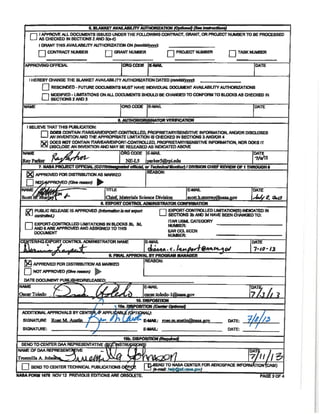 5. BLANKET AVAILABILITY AUTHORIZATION (Optional) (See instructions)
I APPROVE ALL DOCUMENTS ISSUED UNDER THE FOLLOWING CONTRACT, GRANT, OR PROJECT NUMBER TO BE PROCESSED
AS CHECKED IN SECTIONS 2 AND 3(a-d)
I GRANT THIS AVAILABILITY AUTHORIZATION ON (mm/dd/yyyy)
CONTRACT NUMBER GRANT NUMBER PROJECT NUMBER TASK NUMBER
APPROVING OFFICIAL ORG CODE E-MAIL DATE
I HEREBY CHANGE THE BLANKET AVAILABILITY AUTHORIZATION DATED (mm/dd/yyyy)
RESCINDED - FUTURE DOCUMENTS MUST HAVE INDIVIDUAL DOCUMENT AVAILABILITY AUTHORIZATIONS
MODIFIED - LIMITATIONS ON ALL DOCUMENTS SHOULD BE CHANGED TO CONFORM TO BLOCKS AS CHECKED IN
SECTIONS 2 AND 3
NAME ORG CODE E-MAIL DATE
6. AUTHOR/ORIGINATOR VERIFICATION
I BELIEVE THAT THIS PUBLICATION:
DOES CONTAIN ITAR/EAR/EXPORT-CONTROLLED, PROPRIETARY/SENSITIVE INFORMATION, AND/OR DISCLOSES
AN INVENTION AND THE APPROPRIATE LIMITATION IS CHECKED IN SECTIONS 3 AND/OR 4
DOES NOT CONTAIN ITAR/EAR/EXPORT-CONTROLLED, PROPRIETARY/SENSITIVE INFORMATION, NOR DOES IT
DISCLOSE AN INVENTION AND MAY BE RELEASED AS INDICATED ABOVE
NAME ORG CODE E-MAIL DATE
Key Parker
7. NASA PROJECT OFFICIAL / DIVISION CHIEF REVIEW OF 1 THROUGH 6
APPROVED FOR DISTRIBUTION AS MARKED REASON:
NOT APPROVED (Give reason)
NAME TITLE E-MAIL DATE
Scott Chief, Materials Science Division
8. EXPORT CONTROL ADMINISTRATOR CONFIRMATION
PUBLIC RELEASE IS APPROVED (Information is not export
controlled.)
EXPORT-CONTROLLED LIMITATION(S) INDICATED IN
SECTIONS 3b AND 3d HAVE BEEN CHANGED TO:
EXPORT-CONTROLLED LIMITATIONS IN BLOCKS 3b, 3d,
AND 6 ARE APPROVED AND ASSIGNED TO THIS
DOCUMENT
ITAR USML CATEGORY
NUMBER:
EAR CCL ECCN
NUMBER:
CENTER/HQ EXPORT CONTROL ADMINISTRATOR NAME E-MAIL DATE
7-10-13
9. FINAL APPROVAL BY PROGRAM MANAGER
APPROVED FOR DISTRIBUTION AS MARKED REASON:
NOT APPROVED (Give reason)
DATE DOCUMENT PUBLISHED/RELEASED:
NAME E-MAIL DATE
Oscar Toledo oscar.toledo-1@nasa.gov
10. DISPOSITION
10a. DISPOSITION (Center Optional)
ADDITIONAL APPROVALS BY CENTER, IF APPLICABLE (OPTIONAL)
SIGNATURE: Rose M. Austin E-MAIL: rose.m.austin@nasa.gov DATE:
SIGNATURE: E-MAIL: DATE:
10b. DISPOSITION (Required)
SEND TO CENTER DAA REPRESENTATIVE (SEE INSTRUCTIONS)
NAME OF DAA REPRESENTATIVE DATE
Tremella A. Johnson
SEND TO CENTER TECHNICAL PUBLICATIONS OFFICE SEND TO NASA CENTER FOR AEROSPACE INFORMATION (CASI)
(e-mail: help@sti.nasa.gov)
NASA FORM 1676 NOV 12 PREVIOUS EDITIONS ARE OBSOLETE. PAGE 3 OF 4